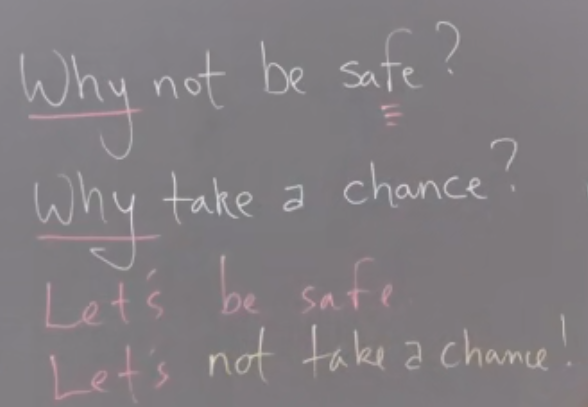 Why not be safe?
Why take a chance?
Let's be safe.
Let's not take a chance!